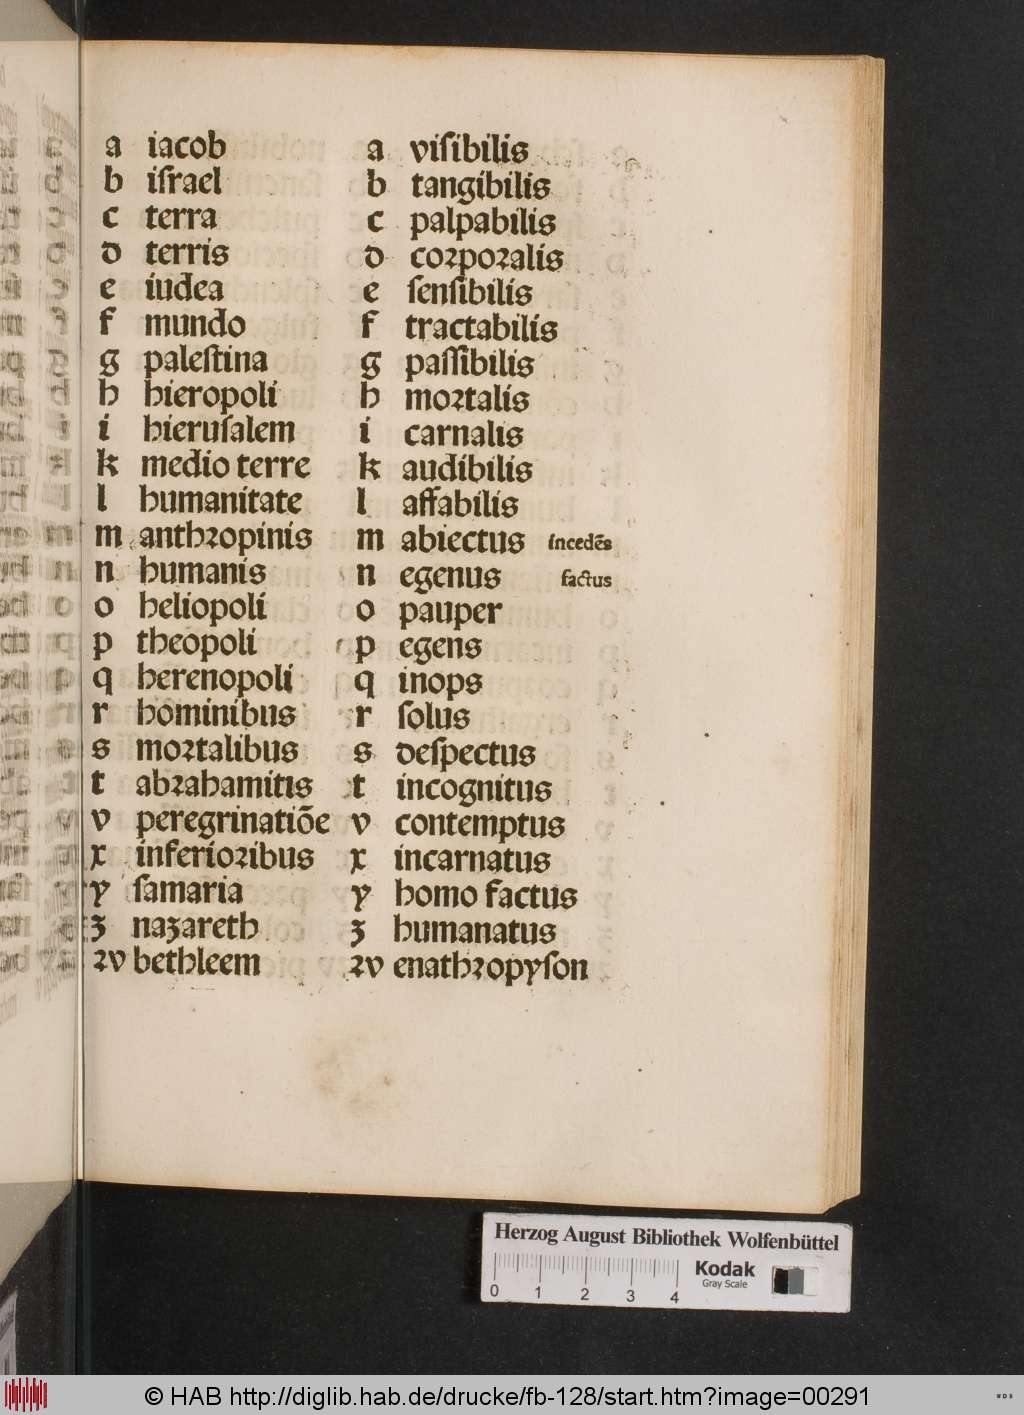 a iacob
b iſrael
c terra
d terris
e iudea
f mundo
g paleſtina
h hieropoli
i hieruſalem
k medio terre
l humanitate
m anthꝛopinis
n humanis
o heliopoli
p theopoli
q herenopoli
r hominibus
s moꝛtalibus
t abꝛahamitis
v peregrinatiōe
x inferioꝛibus
y ſamaria
ʒ naʒareth
ꝛv bethleem
a viſibilis
b tangibilis
c palpabilis
d coꝛpoꝛalis
e ſenſibilis
f tractabilis
g paſſibilis
h moꝛtalis
i carnalis
k audibilis
l affabilis
m abiectus incedēs
n egenus factus
o pauper
p egens
q inops
r ſolus
s deſpectus
t incognitus
v contemptus
x incarnatus
y homo factus
ʒ humanatus
ꝛv enathꝛopyſon
Herzog August Bibliothek Wolfenbüttel
Kodak
Gray Scale
0 1 2 3 4
© HAB http://diglib.hab.de/drucke/fb-128/start.htm?image=00291